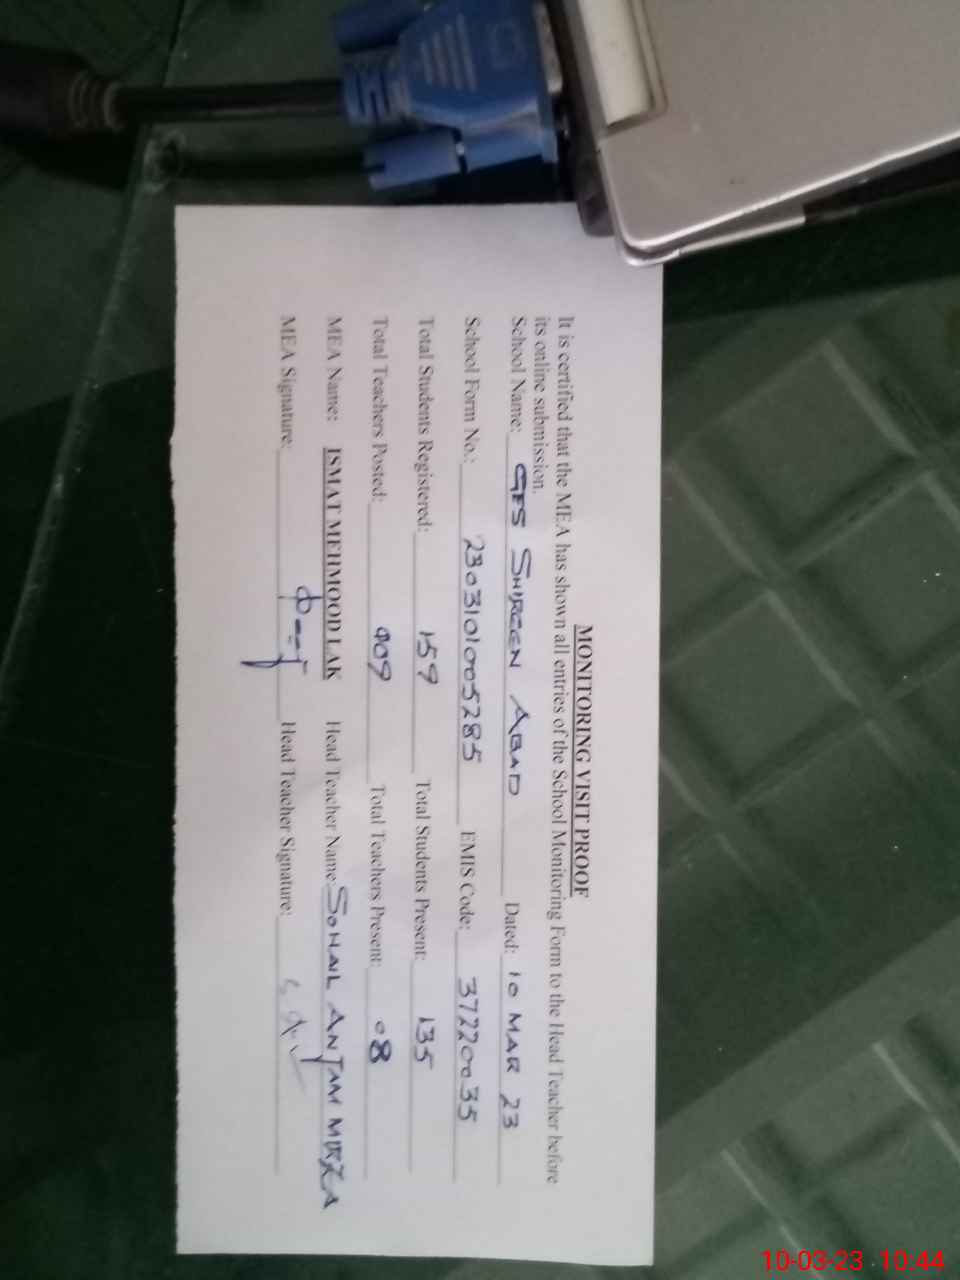 MONITORING VISIT PROOF
It is certified that the MEA has shown all entries of the School Monitoring Form to the Head Teacher before
its online submission.
School Name: GES SHIREEN ABAD Dated: 10 MAR 23
School Form No.: 2303101005285 EMIS Code: 37220035
Total Students Registered: 159 Total Students Present: 135
Total Teachers Posted: 09 Total Teachers Present: 08
MEA Name: ISMAT MEHMOOD LAK Head Teacher Name: SOHAIL ANJAM MIRZA
MEA Signature: Head Teacher Signature:
10-03-23 10:44